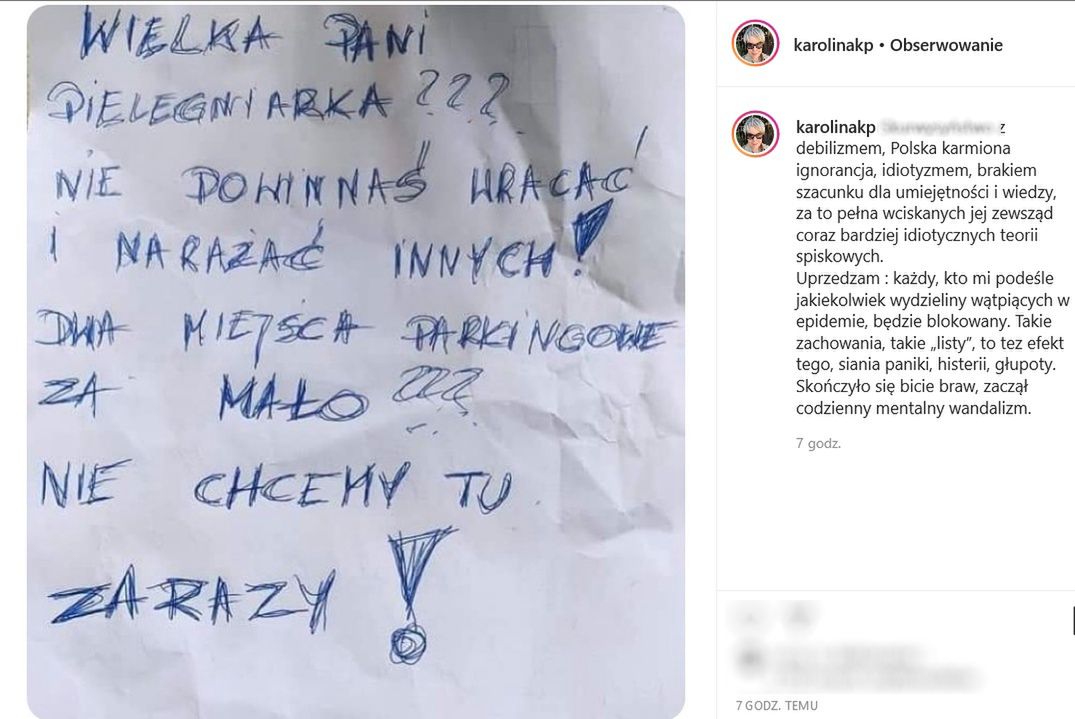 WIELKA PANI
PIELEGNIARKA ???
NIE POWINNAŚ WRACAĆ
I NARAŻAĆ INNYCH!
DWA MIEJSCA PARKINGOWE
ZA MAŁO ???
NIE CHCEMY TU
ZARAZY !
karolinakp • Obserwowanie
karolinakp z
debilizmem, Polska karmiona
ignorancja, idiotyzmem, brakiem
szacunku dla umiejętności i wiedzy,
za to pełna wciskanych jej zewsząd
coraz bardziej idiotycznych teorii
spiskowych.
Uprzedzam : każdy, kto mi podeśle
jakiekolwiek wydzieliny wątpiących w
epidemie, będzie blokowany. Takie
zachowania, takie „listy”, to tez efekt
tego, siania paniki, histerii, głupoty.
Skończyło się bicie braw, zaczął
codzienny mentalny wandalizm.
7 godz.
7 GODZ. TEMU